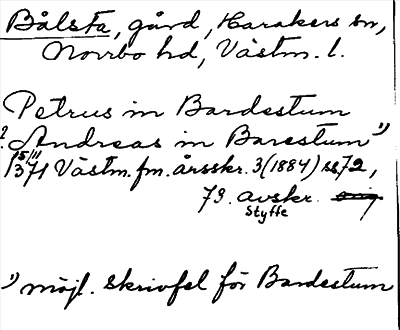 Bålsta, gård, Harakers sn,
Norrbo hd, Västm. l.
Petrus in Bardestum
? Andreas in Barestum 1)
15/11 1371 Västm. fm. årsskr. 3 (1884) ss 72,
73. avskr.
Styffe
1) möjl. skrivfel för Bardestum